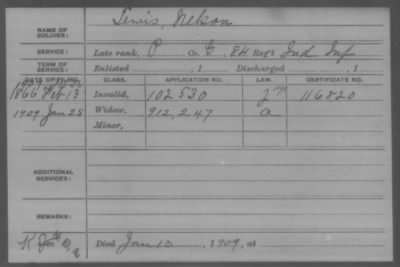 Lewis, Nelson
NAME OF SOLDIER:
SERVICE: Late rank, P Co. G, 84 Reg't Ind Inf
TERM OF SERVICE: Enlisted , 1 Discharged , 1
DATE OF FILING. CLASS. APPLICATION NO. LAW. CERTIFICATE NO.
1866 Feb 13 Invalid, 102530 116820
1909 Jan 25 Widow, 912,247 a
Minor,
ADDITIONAL SERVICES:
REMARKS:
Died Jan 13, 1909, at